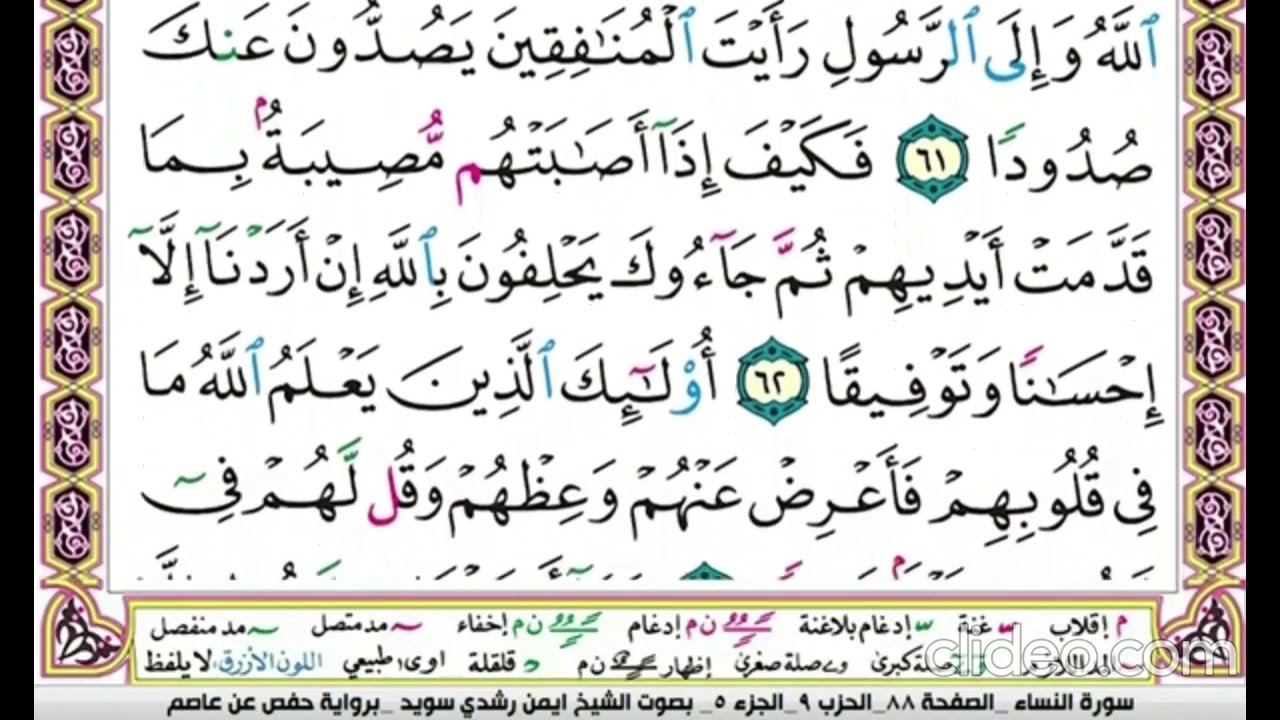 ٱللَّهُ وَإِلَى ٱلرَّسُولِ رَأَيْتَ ٱلْمُنَـٰفِقِينَ يَصُدُّونَ عَنكَ
صُدُودًا ٦١ فَكَيْفَ إِذَآ أَصَـٰبَتْهُم مُّصِيبَةٌۢ بِمَا
قَدَّمَتْ أَيْدِيهِمْ ثُمَّ جَآءُوكَ يَحْلِفُونَ بِٱللَّهِ إِنْ أَرَدْنَآ إِلَّآ
إِحْسَـٰنًا وَتَوْفِيقًا ٦٢ أُو۟لَـٰٓئِكَ ٱلَّذِينَ يَعْلَمُ ٱللَّهُ مَا
فِى قُلُوبِهِمْ فَأَعْرِضْ عَنْهُمْ وَعِظْهُمْ وَقُل لَّهُمْ فِىٓ
م إقلاب غنة إدغام بلاغنة ن م إدغام ن م إخفاء مد متصل مد منفصل
المد اللازم صلة كبرى و ے صلة صغرى إظهار ن م قلقلة اوى، طبيعي اللون الأزرق، لا يلفظ
clideo.com
سورة النساء _الصفحة ٨٨_ الحزب ٩_ الجزء ٥_ بصوت الشيخ ايمن رشدي سويد _برواية حفص عن عاصم